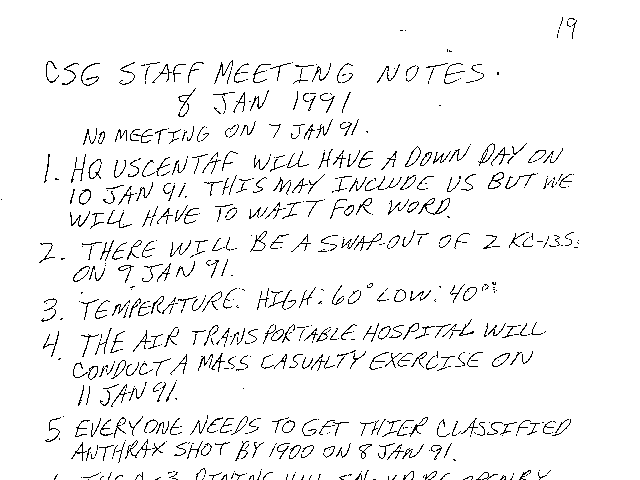 19
CSG STAFF MEETING NOTES.
8 JAN 1991
NO MEETING ON 7 JAN 91.
1. HQ USCENTAF WILL HAVE A DOWN DAY ON
10 JAN 91. THIS MAY INCLUDE US BUT WE
WILL HAVE TO WAIT FOR WORD.
2. THERE WILL BE A SWAP-OUT OF 2 KC-135s
ON 9 JAN 91.
3. TEMPERATURE: HIGH: 60° LOW: 40°
4. THE AIR TRANSPORTABLE HOSPITAL WILL
CONDUCT A MASS CASUALTY EXERCISE ON
11 JAN 91.
5. EVERYONE NEEDS TO GET THIER CLASSIFIED
ANTHRAX SHOT BY 1900 ON 8 JAN 91.
THE DINING